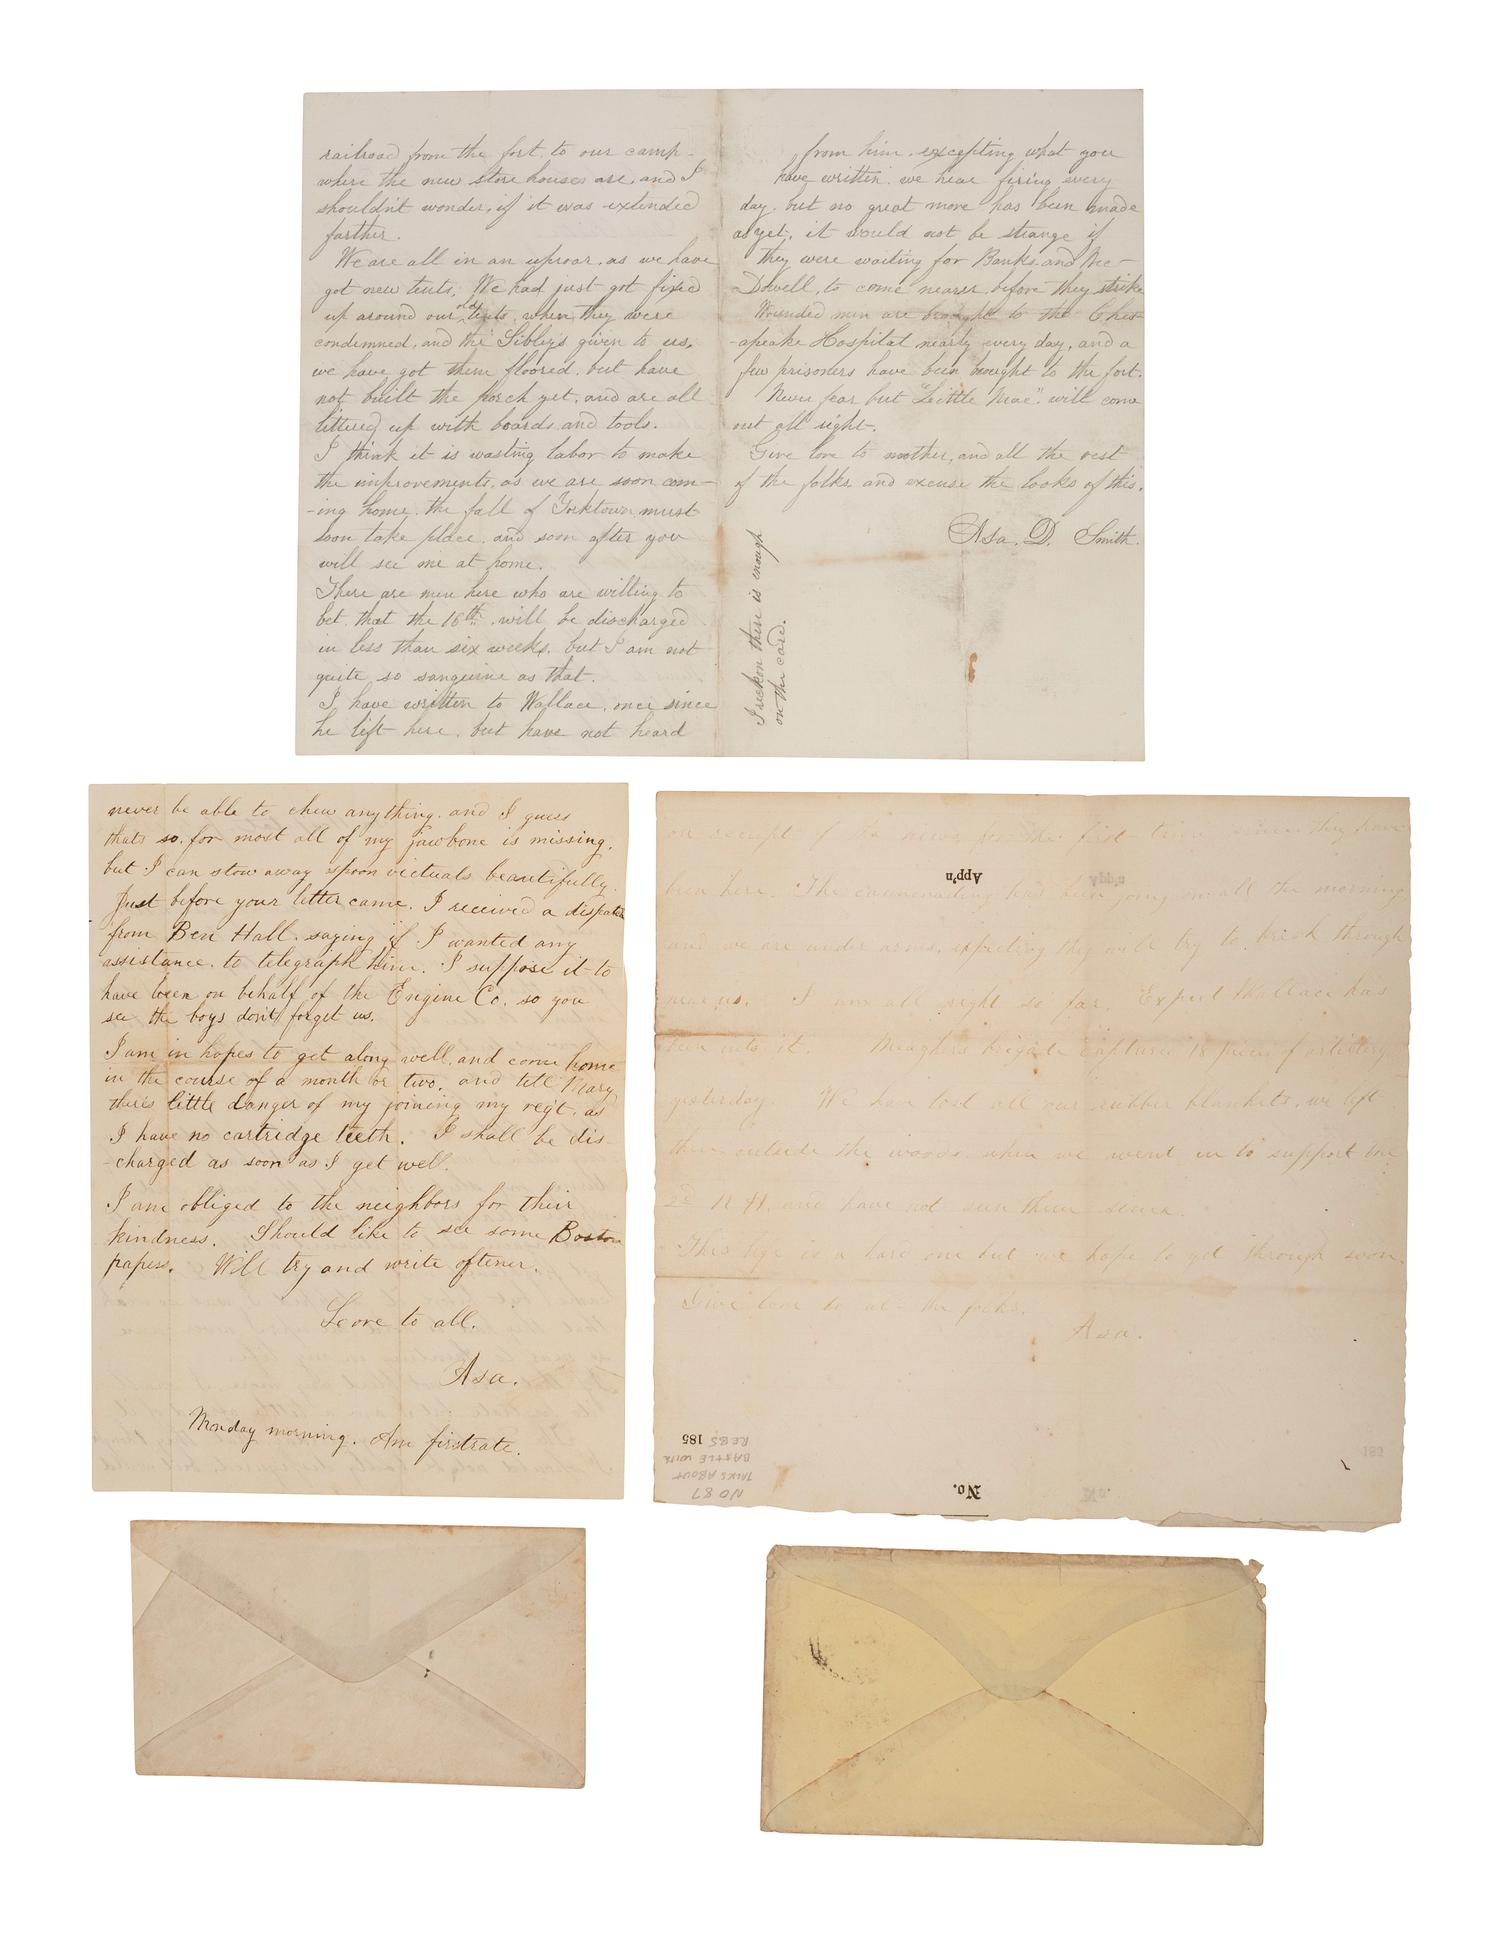 railroad from the fort to our camp-
where the new store houses are, and I
shouldn't wonder, if it was extended
farther.
We are all in an uproar, as we have
got new tents. We had just got fixed
up around our old tents, when they were
condemned, and the Sibleys given to us.
we have got them floored, but have
not built the porch yet, and are all
littered up with boards, and tools.
I think it is wasting labor to make
the improvements, as we are soon com-
-ing home. the fall of Yorktown must
soon take place, and soon after you
will see me at home.
There are men here who are willing to
bet, that the 16th, will be discharged
in less than six weeks, but I am not
quite so sanguine as that.
I have written to Wallace, once since
he left here, but have not heard
from him, excepting what you
have written. we hear firing every
day, but no great move has been made
as yet, it would not be strange if
they were waiting for Banks and Mc-
Dowell, to come nearer before they strike
Wounded men are brought to the Ches-
-apeake Hospital nearly every day, and a
few prisoners have been brought to the fort.
Never fear but "Little Mac" will come
out all right.
Give love to mother, and all the rest
of the folks and excuse the looks of this.
Asa. D. Smith.
I reckon there is enough
on the card.
never be able to chew anything, and I guess
thats so, for most all of my jawbone is missing,
but I can stow away spoon victuals beautifully.
Just before your letter came, I received a dispatch
from Ben Hall, saying if I wanted any
assistance, to telegraph him. I suppose it to
have been on behalf of the Engine Co. so you
see the boys dont forget us.
I am in hopes to get along well, and come home
in the course of a month or two, and tell Mary
there's little danger of my joining my reg't, as
I have no cartridge teeth. I shall be dis-
-charged as soon as I get well.
I am obliged to the neighbors for their
kindness. Should like to see some Boston
papers. Will try and write oftener.
Love to all.
Asa.
Monday morning. Am firstrate.
on receipt of the news, for the first time since they have
App'n
been here. The cannonading had been going on all the morning
and we are under arms, expecting they will try to break through
near us. I am all right so far. Expect Wallace has
been into it. Meagher's brigade captured 18 pieces of artillery
yesterday. We have lost all our rubber blankets, we left
them outside the woods when we went in to support the
2d N H, and have not seen them since.
This life is a hard one but we hope to get through soon.
Give love to all the folks.
Asa.
185
NO 87
TALKS ABOUT
BATTLE WITH
REBS
No.